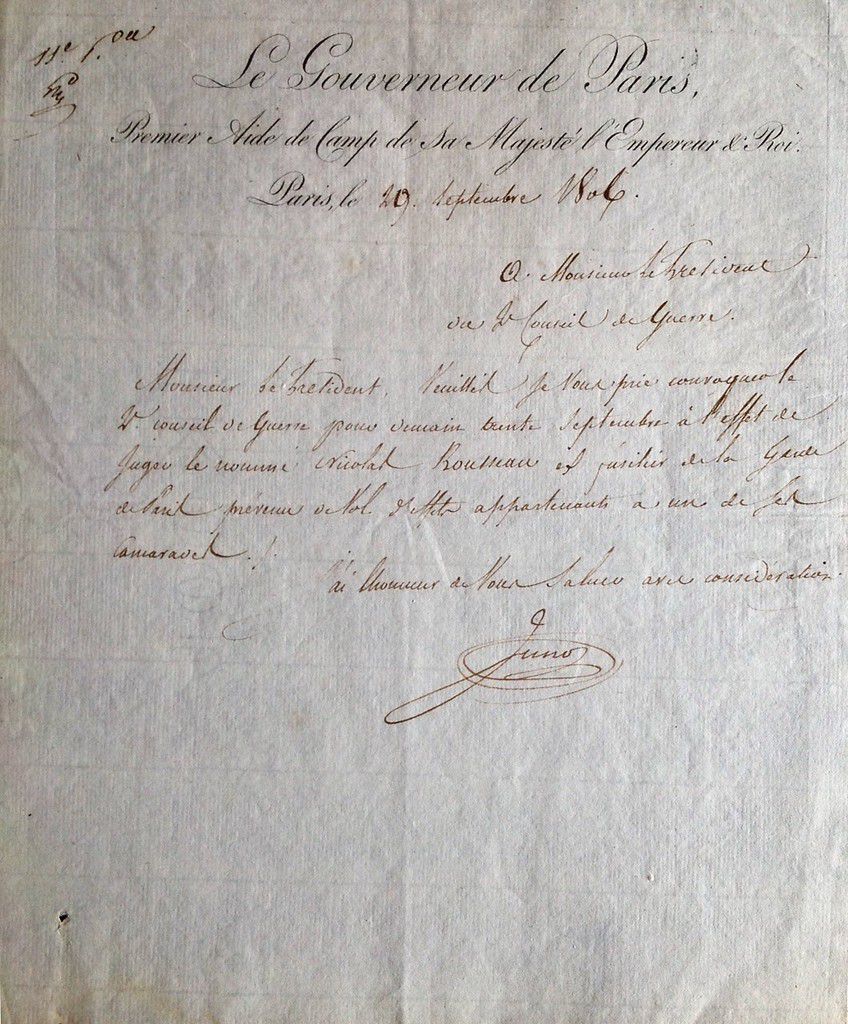 11e
Le Gouverneur de Paris,
Premier Aide de Camp de Sa Majesté l'Empereur & Roi.
Paris, le 29. Septembre 1806.
A Monsieur Le President
du 2e Conseil de Guerre.
Monsieur Le President, Veuillez je Vous prie convoquer le
2e conseil de Guerre pour demain trente Septembre à l'effet de
Juger le nommé Nicolas Rousseau ex fusilier de la Garde
de Paris prévenu de Vol d'effets appartenants à un de Ses
Camarades ./.
J'ai l'honneur de Vous Saluer avec consideration.
Junot